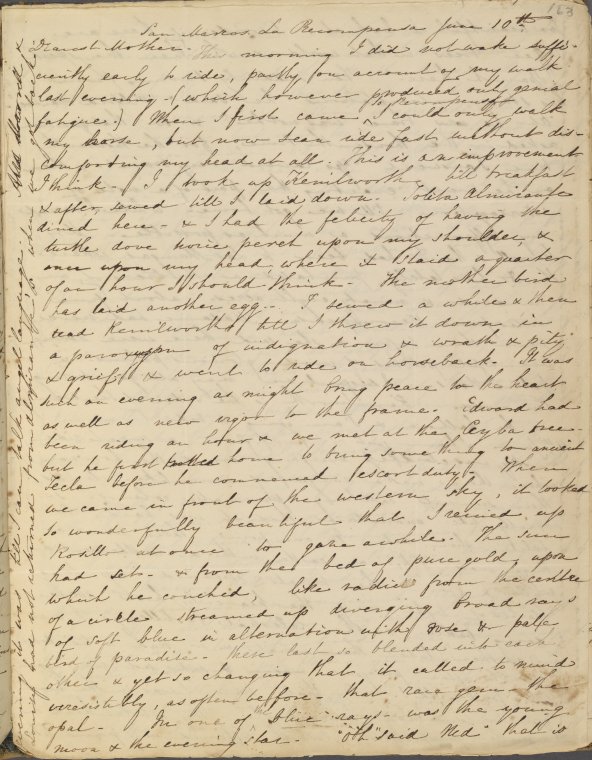 163
San Marcos, La Recompensa June 10th
Dearest Mother. This morning I did not wake suffi-
ciently early to ride, partly on account of my walk
last evening (which however produced only genial
fatigue.) When I first came to Recompensa I could only walk
my horse, but now I can ride fast without dis-
comforting my head at all. This is an improvement
I think. I took up Kenilworth till breakfast
& after, sewed till I laid down. Lolita Almirante
dined here - & I had the felicity of having the
turtle dove twice perch upon my shoulder, &
once upon my head, where it staid a quarter
of an hour I should think. The mother bird
has laid another egg. I sewed a while & then
read Kenilworth till I threw it down in
a paroxysm of indignation & wrath & pity
& grief & went to ride on horseback. It was
such an evening as might bring peace to the heart
as well as new vigor to the frame. Edward had
been riding an hour & we met at the Ceyba tree.
but he first home to bring something to ancient
Tecla before he commenced escort duty. When
we came in front of the western sky, it looked
so wonderfully beautiful that I reined up
Rosillo at once to gaze awhile. The sun
had set - & from the bed of pure gold, upon
which he couched, like radii from the centre
of a circle streamed up diverging broad rays
of soft blue in alternation with rose & pale
bird of paradise. These last so blended into each
other & yet so changing that it called to mind
irresistibly as often before - that rare gem - the
opal. In one of "blue" rays was the young
moon & the evening star. "Oh" said Ned "that is
till I can talk angel language.